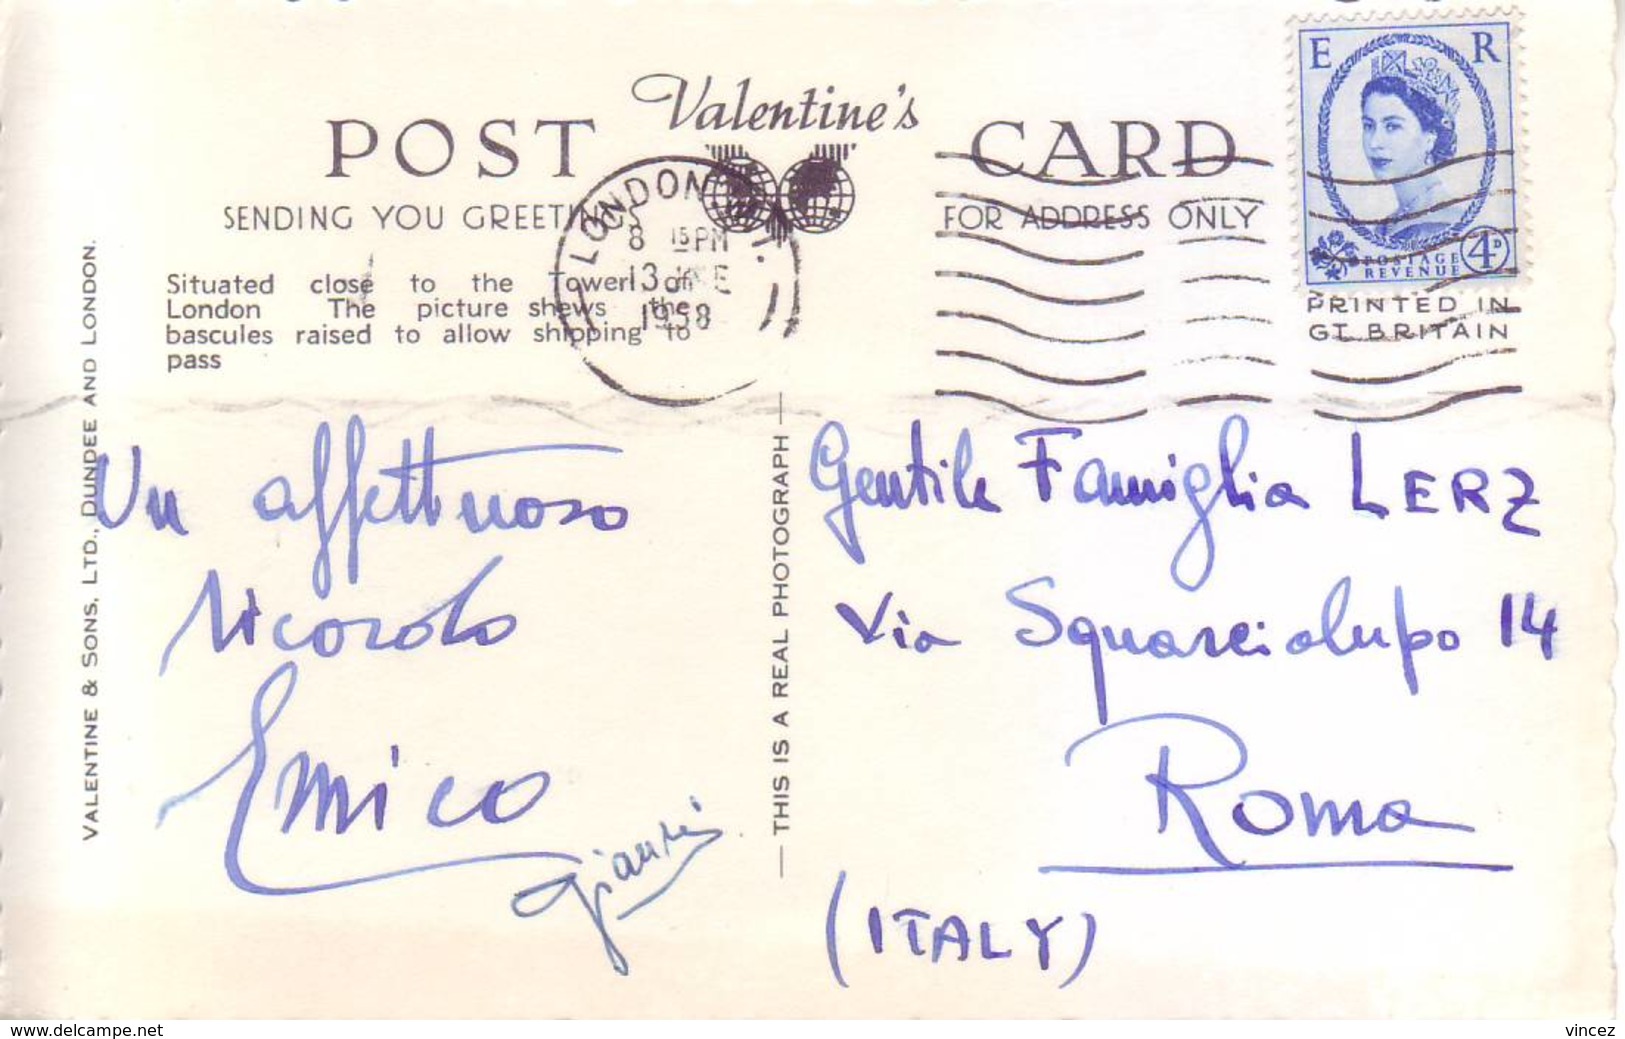 Valentine's
POST CARD
SENDING YOU GREETINGS
FOR ADDRESS ONLY
LONDON
8 15 PM
13
1958
E R
POSTAGE
REVENUE
4D
PRINTED IN
GT. BRITAIN
Situated close to the Tower of
London The picture shews the
bascules raised to allow shipping to
pass
VALENTINE & SONS, LTD., DUNDEE AND LONDON.
THIS IS A REAL PHOTOGRAPH
Un affettuoso
ricordo
Gentile Famiglia LERZ
Via Squarcialupo 14
Roma
(ITALY)
www.delcampe.net
vincez